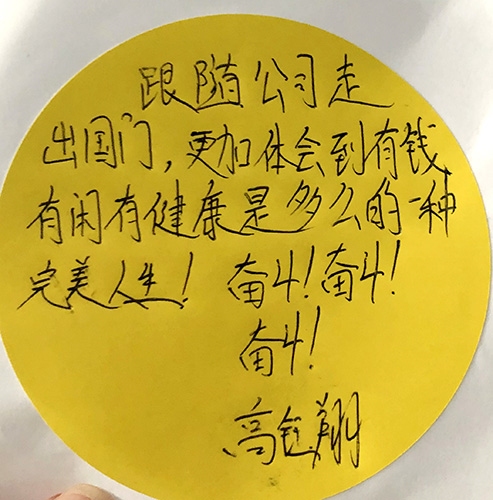 跟随公司走
出国门,更加体会到有钱
有闲有健康是多么的一种
完美人生!奋斗!奋斗!
奋斗!
高钰翔